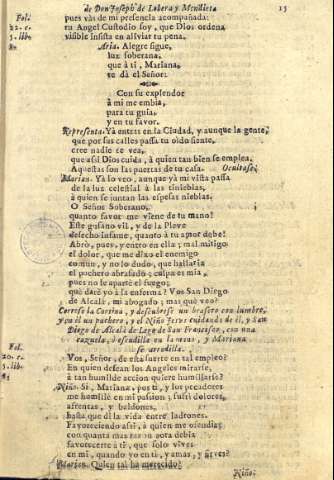 de Don Joseph de Lobera y Mendieta. 15
Fol. pues vàs de mi presencia acompañada:
22. c. tu Angel Custodio soy, que Dios ordena
5. lib. visible insista en aliviar tu pena.
82 Aria. Alegre sigue,
luz soberana,
que à ti, Mariana,
te dà el Señor.
Con su explendor
à mi me embia,
para tu guia,
y en tu favor.
Representa. Yà entras en la Ciudad, y aunque la gente,
que por sus calles passa tu oìdo siente,
cree nadie te vea,
que assi Dios cuida, à quien tan bien se emplea.
Aquestas son las puertas de tu casa. Ocultase.
Marian. Yà lo veo, aunque yà mi vista passa
de la luz celestial à las tinieblas,
à quien se juntan las espesas nieblas.
O Señor Soberano,
quanto favor me viene de tu mano!
Este gusano vil, y de la Pleve
desecho infame, quanto à tu amor debe!
Abrò, pues, y entro en ella; mal mitigo
el dolor, que me dixo el enemigo
comun, y no lo dudo, que hallaria
el puchero abrasado; culpa es mia,
pues no le apartè el fuego;
què darè yo à la enferma? Vos San Diego
de Alcalà, mi abogado; mas què veo?
Correse la Cortina, y descubrese un brasero con lumbre,
y en èl un puchero, y el Niño Jesus cuidando de èl, y San
Diego de Alcalà de Lego de San Francisco, con una
cazuela, ò escudilla en la mano, y Mariana
Fol. se arrodilla.
20. c. Vos, Señor, de esta suerte en tal empleo?
5. lib. En quien desean los Angeles mirarse,
à tan humilde accion quiere humillarse?
81 Niño. Si, Mariana, por ti, y los pecadores
me humillè en mi passion, sufrì dolores,
afrentas, y baldones,
hasta que dì la vida entre ladrones.
Favoreciendo assi, à quien me ofendia;
con quanta mas razon
favorecerè à ti, que solo vives
en mi, quando yo en ti, y amas, y sirves?
Marian. Quien tal ha merecido?
Niño.